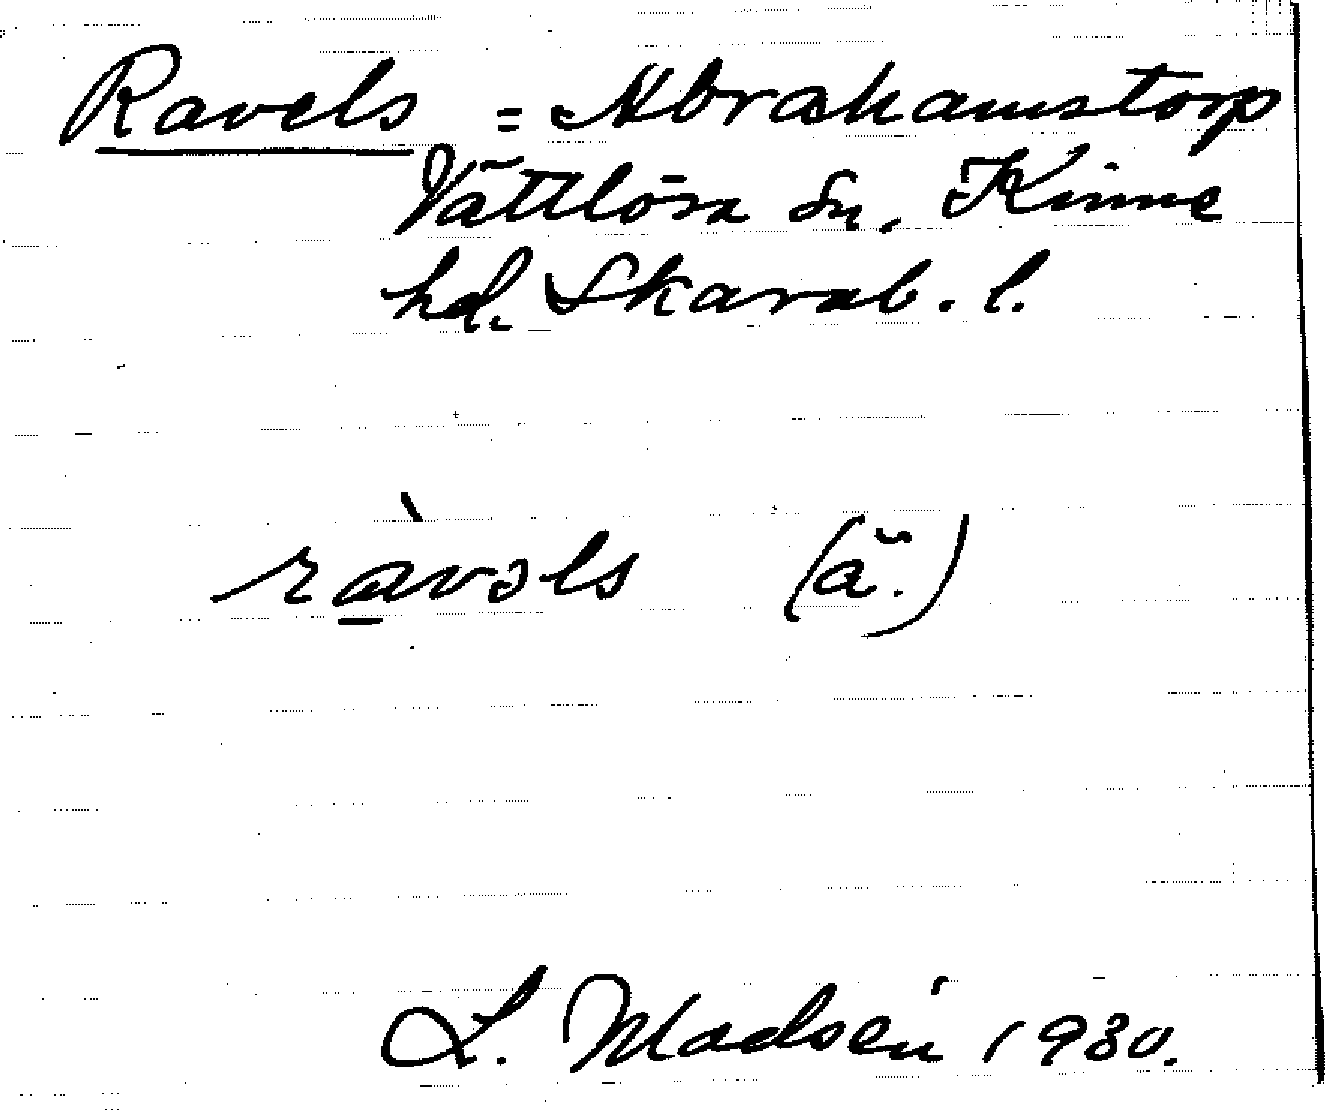 Ravels = Abrahamstorp
Vättlösa sn, Kinne
hd. Skarab. l.
ràvəls (ä.)
L. Madsén 1930.